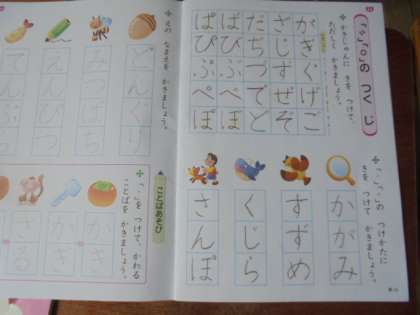 「゛」「゜」の つく じ
かきじゅんに きを つけて、
ただしく かきましょう。
がぎぐげご
ざじずぜぞ
だぢづでど
ばびぶべぼ
ぱぴぷぺぽ
「゛」「゜」の つけかたに
きを つけて かきましょう。
かがみ
すずめ
くじら
さんぽ
えの なまえを かきましょう。
どんぐり
えんぴつ
てんぷら
ことばあそび
「゛」を つけて、かわる
ことばを かきましょう。
かき
さる